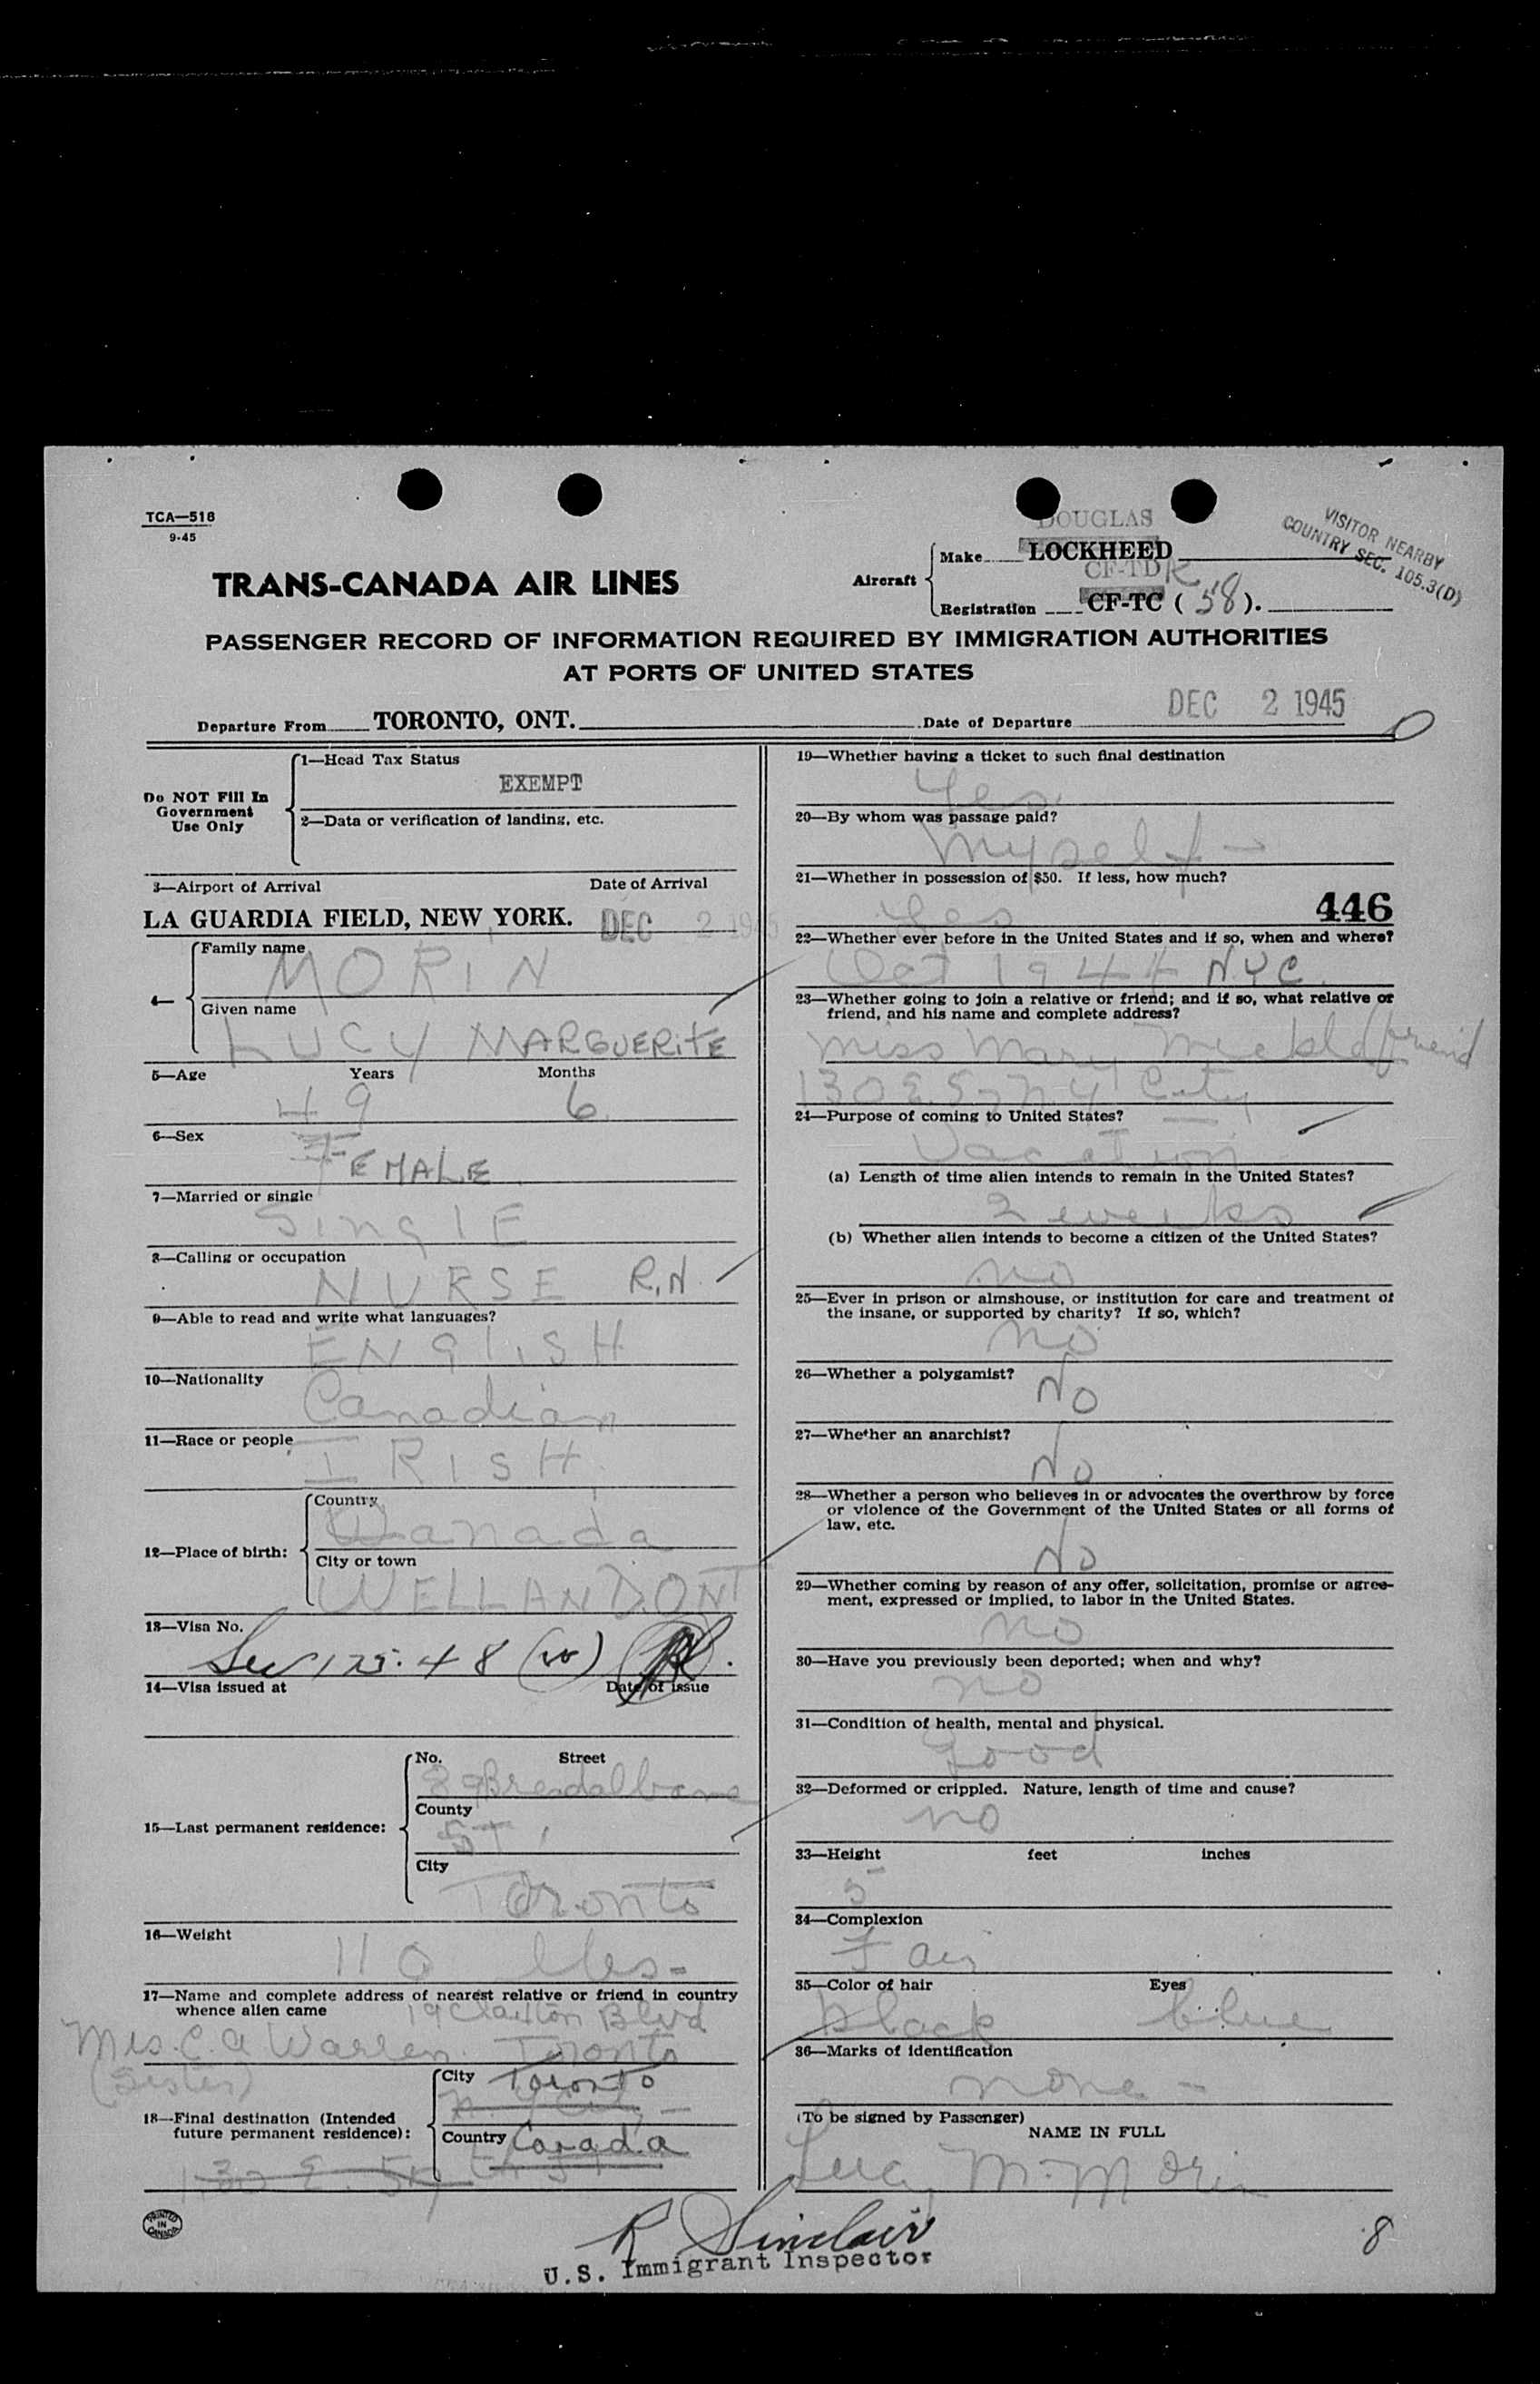 TCA—518
9-45
DOUGLAS
VISITOR NEARBY
COUNTRY SEC. 105.3(D)
TRANS-CANADA AIR LINES
Aircraft
Make LOCKHEED
CF-TDK
Registration CF-TC (58).
PASSENGER RECORD OF INFORMATION REQUIRED BY IMMIGRATION AUTHORITIES
AT PORTS OF UNITED STATES
Departure From TORONTO, ONT. Date of Departure DEC 2 1945
Do NOT Fill In
Government
Use Only
1—Head Tax Status
EXEMPT
2—Data or verification of landing, etc.
3—Airport of Arrival Date of Arrival
LA GUARDIA FIELD, NEW YORK. DEC 2 1945
4—
Family name
MORIN
Given name
LUCY MARGUERITE
5—Age Years Months
49 6
6—Sex
FEMALE
7—Married or single
SINGLE
8—Calling or occupation
NURSE R.N.
9—Able to read and write what languages?
ENGLISH
10—Nationality
Canadian
11—Race or people
IRISH
12—Place of birth:
Country
Canada
City or town
WELLAND.ONT
13—Visa No.
Sec 125.48
14—Visa issued at Date of issue
15—Last permanent residence:
No. Street
29 Breadalbane
County
ST
City
Toronto
16—Weight
110 lbs-
17—Name and complete address of nearest relative or friend in country
whence alien came 19 Claxton Blvd
Mrs. C. A Warren. Toronto
(Sister)
18—Final destination (Intended
future permanent residence):
City Toronto
N. Y City -
Country Canada
130 E. 57
19—Whether having a ticket to such final destination
Yes
20—By whom was passage paid?
Myself -
21—Whether in possession of $50. If less, how much?
Yes
446
22—Whether ever before in the United States and if so, when and where?
Oct 1944 NYC.
23—Whether going to join a relative or friend; and if so, what relative or
friend, and his name and complete address?
Miss Mary (friend
130 E. 57 N.Y City
24—Purpose of coming to United States?
Vacation
(a) Length of time alien intends to remain in the United States?
2 weeks
(b) Whether alien intends to become a citizen of the United States?
no
25—Ever in prison or almshouse, or institution for care and treatment of
the insane, or supported by charity? If so, which?
no
26—Whether a polygamist?
No
27—Whether an anarchist?
No
28—Whether a person who believes in or advocates the overthrow by force
or violence of the Government of the United States or all forms of
law, etc.
No
29—Whether coming by reason of any offer, solicitation, promise or agree-
ment, expressed or implied, to labor in the United States.
no
30—Have you previously been deported; when and why?
no
31—Condition of health, mental and physical.
Good
32—Deformed or crippled. Nature, length of time and cause?
no
33—Height feet inches
5
34—Complexion
Fair
35—Color of hair Eyes
black blue
36—Marks of identification
none -
(To be signed by Passenger)
NAME IN FULL
Lucy M. Morin
PRINTED
IN
CANADA
R Sinclair
U.S. Immigrant Inspector
8